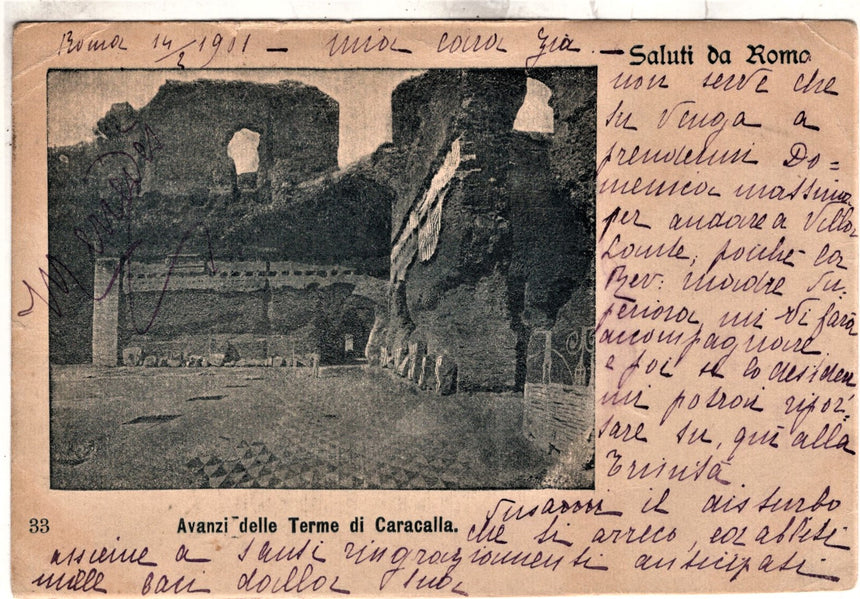 Roma 14/2 1901 – mia cara zia. –
Saluti da Roma
non serve che
tu venga a
prendermi Do=
menica massima
per andare a Villa
Lante, poiché la
Rev: madre Su=
periora mi vi farà
accompagnare
e poi se lo desideri
mi potrai ripor=
tare tu, qui alla
Trinità
Scusami il disturbo
che ti arreco, ed abbiti
assieme a tanti ringraziamenti anticipati
mille baci dalla tua
33
Avanzi delle Terme di Caracalla.